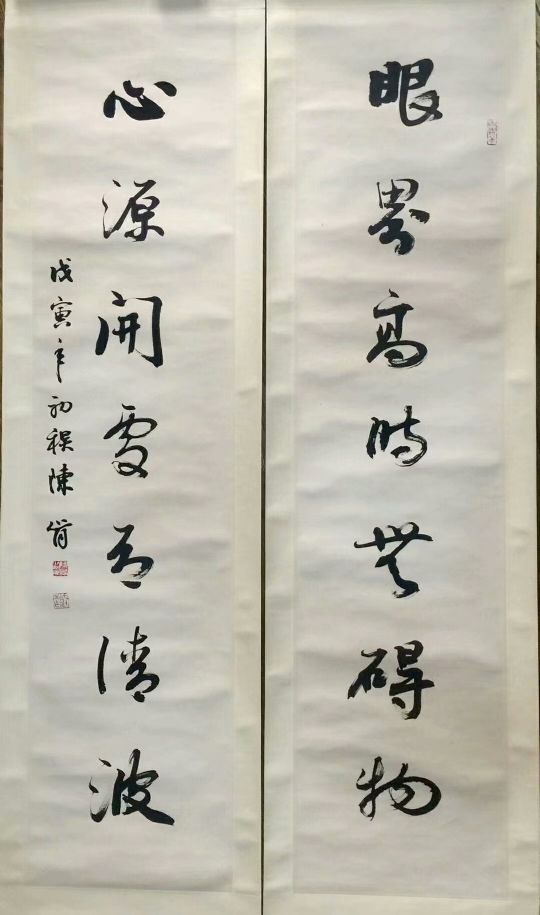 眼界高時無碍物
心源開處有清波
戊寅年初秋陳